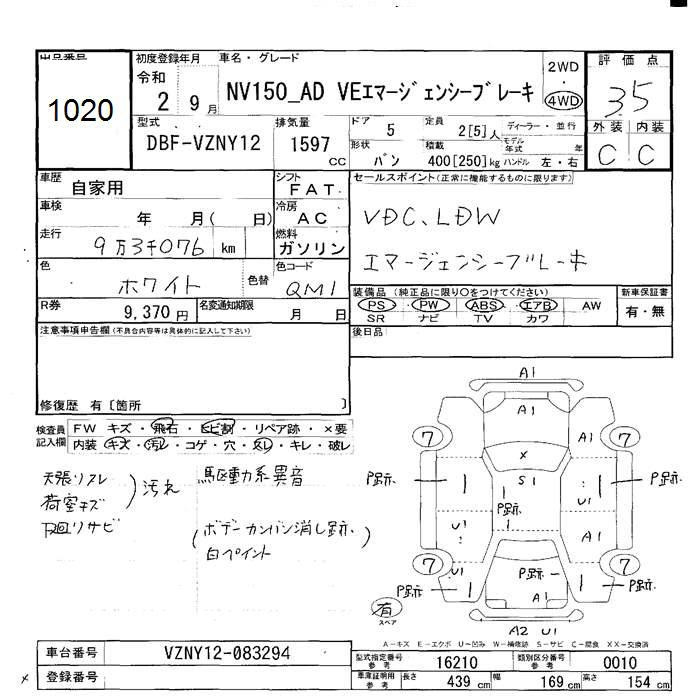 出品番号
1020
初度登録年月
令和
2 9月
車名・グレード
NV150_AD VEエマージェンシーブレーキ
2WD
・
4WD
評価点
35
外装 内装
C C
型式
DBF-VZNY12
排気量
1597 cc
ドア 5
形状 バン
定員 2[5]人
積載 400[250]kg
ディーラー・並行
モデル年式 年
ハンドル 左・右
車歴 自家用
シフト FAT
セールスポイント(正常に機能するものに限ります)
車検 年 月( 日)
冷房 AC
VDC、LDW
走行 9万3千076 km
燃料 ガソリン
エマージェンシーブレーキ
色 ホワイト 色替
色コード QM1
R券 9,370円
名変通知期限 月 日
装備品(純正品に限り○をつけてください)
PS PW ABS エアB AW
SR ナビ TV カワ
新車保証書
有・無
注意事項申告欄(不具合内容等は具体的に記入して下さい)
後日品
修復歴 有〔箇所 〕
検査員記入欄
FW キズ・飛石・ヒビ割・リペア跡・×要
内装 キズ・汚れ・コゲ・穴・スレ・キレ・破レ
天張リスレ
荷室キズ
下廻リサビ
)汚れ
駆動系異音
(ボデーカンバン消し跡.
白ペイント
A1
A1
7 7
A1
×
S1
P跡 P跡
P跡
U1
U1
A1
7 7
U1
P跡 P跡 P跡
A1
有
スペア
A2 U1
A-キズ E-エクボ U-凹み W-補修跡 S-サビ C-腐食 XX-交換済
車台番号 VZNY12-083294
登録番号
×
型式指定番号 参考 16210
類別区分番号 参考 0010
車庫証明用 参考 長さ 439 cm 幅 169 cm 高さ 154 cm